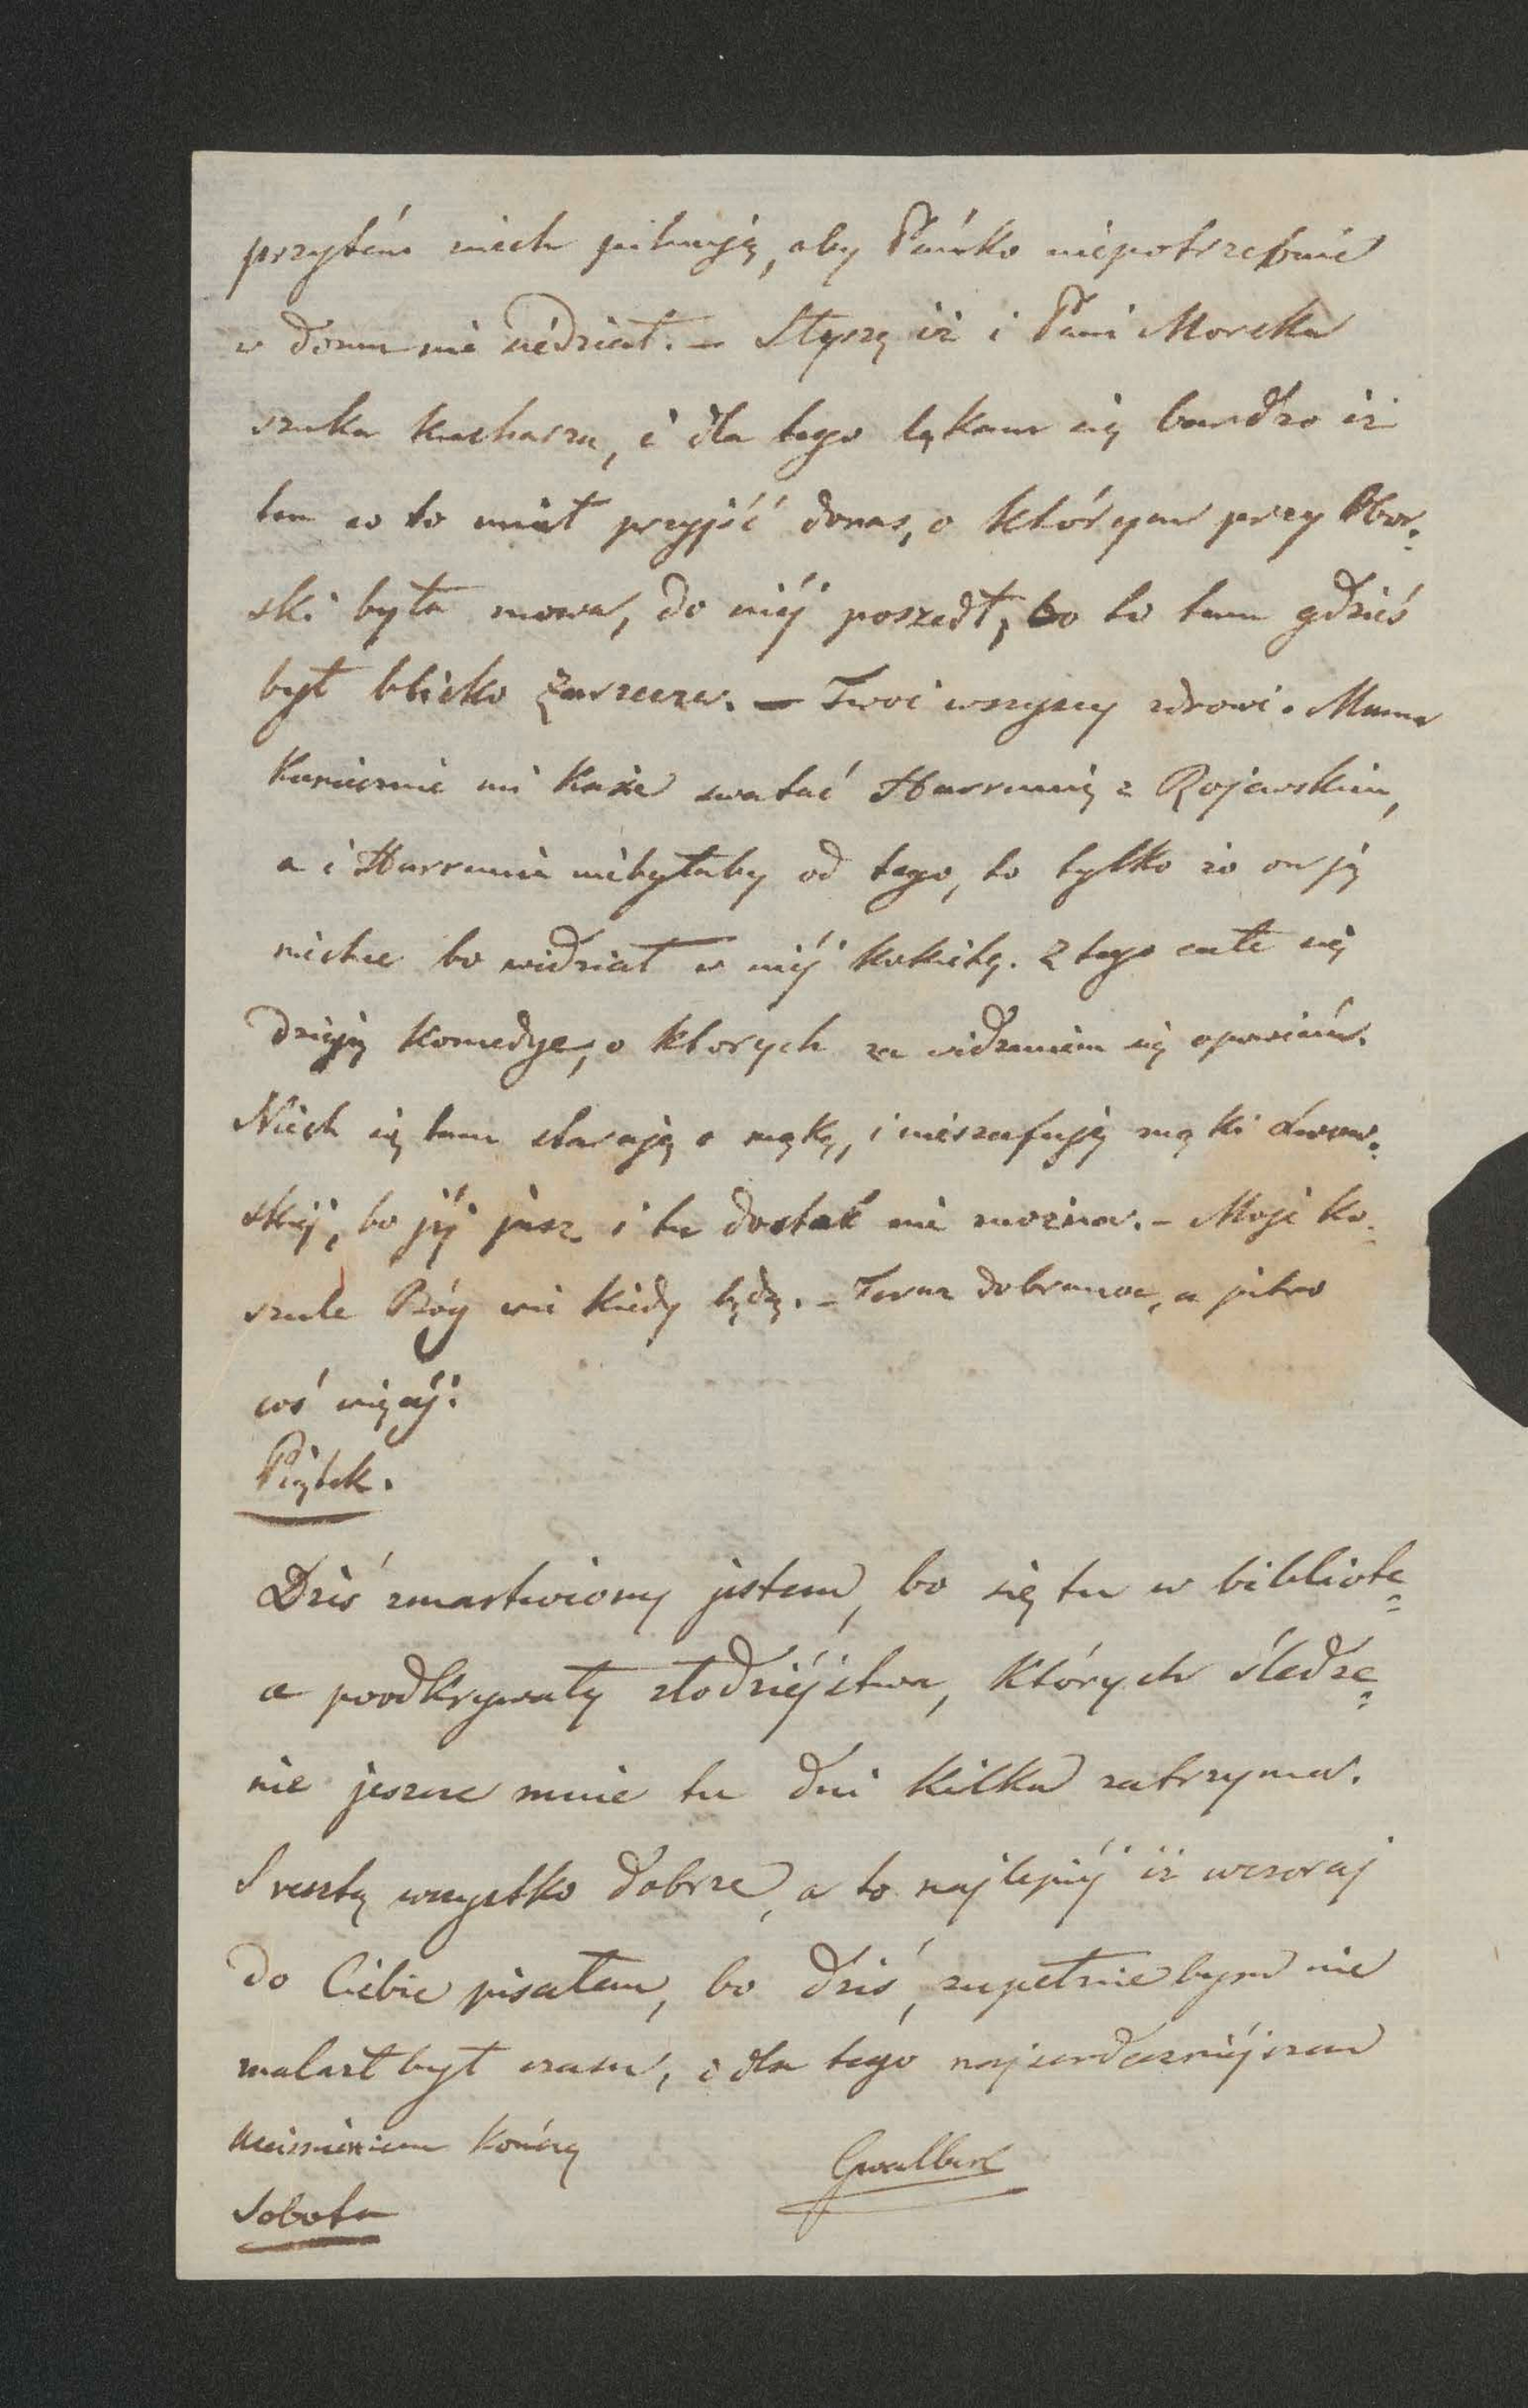 przytém niech pilnują, aby Pańko niepotrzebnie
w domu nie siédział. – Słyszę iż i Pani Morska
szuka kucharza, i dla tego lękam się bardzo iż
ten co to miał przyjść donas, o którym przy Obor-
ski była mowa, do niéj poszedł, bo to tam gdzieś
był blisko Zarzecza. – Twoi wszyscy zdrowi. Mama
koniecznie mi każe swatać Harrunię z Rojewskim,
a i Harrunia niebyłaby od tego, to tylko że on ją
niechce bo widział w niéj kokietę. Z tego całe się
dzieją komedye, o ktorych za widzeniem się opowiém.
Niech się tam starają o mąkę, i nieszafują mąki Lwow-
skiéj, bo jéj jusz i tu dostać nie można. – Moje ko-
szule Bóg wie kiedy będą. – Teraz dobranoc, a jutro
coś więcéj:
Piątek.
Dziś zmartwiony jestem, bo się tu w bibliote=
ce poodkrywały złodziéjstwa, których śledze=
nie jeszcze mnie tu dni kilka zatrzyma.
Z resztą wszystko dobrze, a to najlepiéj iż wczoraj
do Ciebie pisałem, bo dziś, zupełnie bym nie
znalazł był czasu, i dla tego najserdeczniéjszem
uciśnieniem kończę
Gwalbert
Sobota